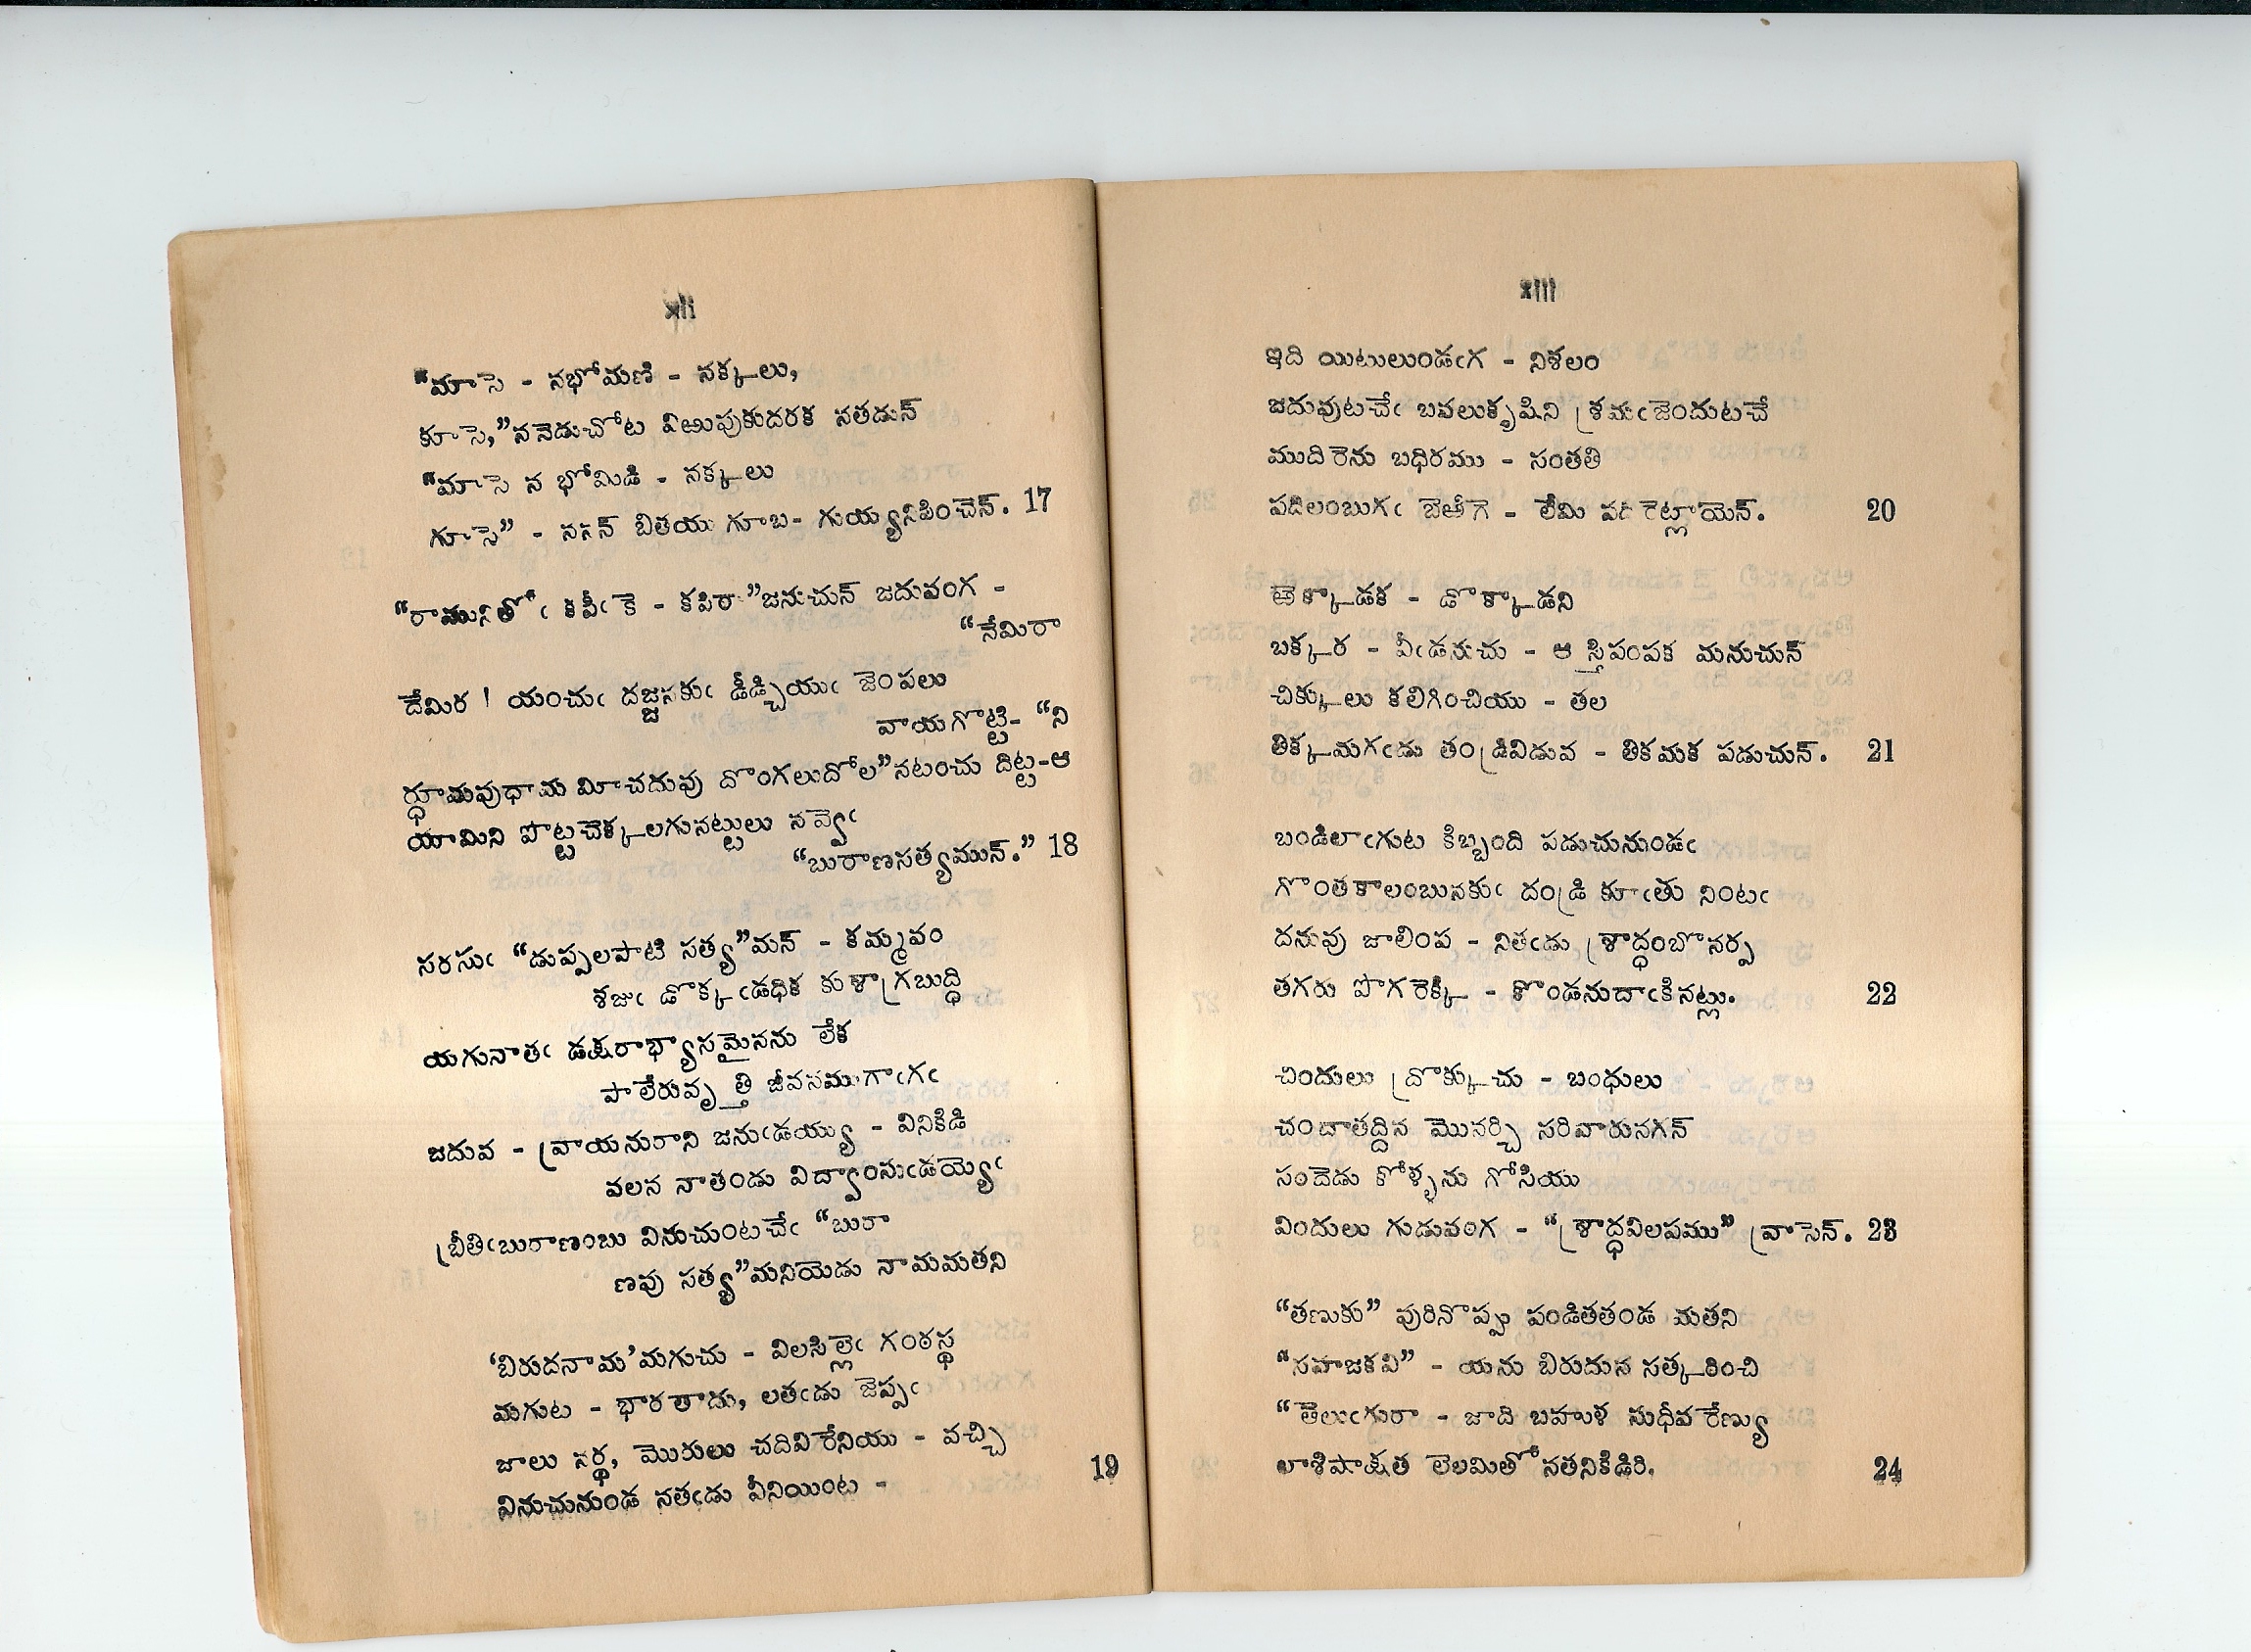 xii
“మాసె - నభోమణి - నక్కలు,
కూసె,”ననెడుచోట విఱుపుకుదరక నతడున్
“మాసె న భోమిడి - నక్కలు
గూసె” - ననన్ బితయు గూబ- గుయ్యనిపించెన్. 17
“రామునితోఁ కపీఁ కె - కపిరా”జనుచున్ జదువంగ -
“నేమిరా
దేమిర ! యంచుఁ దజ్జనకుఁ డీడ్చియుఁ జెంపలు
వాయగొట్టి- “ని
ర్ధూమవుధామ మీచదువు దొంగలుదోల”నటంచు దిట్ట-ఆ
యామిని పొట్టచెక్కలగునట్టులు నవ్వెఁ
“బురాణసత్యమున్.” 18
సరసుఁ “డుప్పలపాటి సత్య”మన్ - కమ్మవం
శజుఁ డొక్కఁడధిక కుశాగ్రబుద్ధి
యగునాతఁ డక్షరాభ్యాసమైనను లేక
పాలేరువృత్తి జీవనముగాఁగఁ
జదువ - వ్రాయనురాని జనుఁడయ్యు - వినికిడి
వలన నాతండు విద్వాంసుఁడయ్యెఁ
బ్రీతిఁబురాణంబు వినుచుంటచేఁ “బురా
ణవు సత్య”మనియెడు నామమతని
‘బిరుదనామ’మగుచు - విలసిల్లెఁ గంఠస్థ
మగుట - భారతాదు, లతఁడు జెప్పఁ
జాలు నర్థ, మొకులు చదివిరేనియు - వచ్చి
వినుచునుండ నతఁడు వీనియింట - 19
xiii
ఇది యిటులుండఁగ - నిశలం
జదువుటచేఁ బవలుకృషిని శ్రమఁజెందుటచే
ముదిరెను బధిరము - సంతతి
పదిలంబుగఁ బెఱిగె - లేమి పదిరెట్లాయెన్. 20
ఱెక్కాడక - డొక్కాడని
బక్కర - వీఁడనుచు - ఆ స్తిపంపక మనుచున్
చిక్కులు కలిగించియు - తల
తిక్కమగఁడు తండ్రివిడువ - తికమక పడుచున్. 21
బండిలాఁగుట కిబ్బంది పడుచునుండఁ
గొంతకాలంబునకుఁ దండ్రి కూఁతు నింటఁ
దనువు జాలింప - నితఁడు శ్రాద్ధంబొనర్ప
తగరు పొగరెక్కి - కొండనుదాఁకినట్లు. 22
చిందులు ద్రొక్కుచు - బంధులు
చందాతద్దిన మొనర్చి సరివారునగన్
సందెడు కోళ్ళను గోసియు
విందులు గుడువంగ - “శ్రాద్ధవిలపము” వ్రాసెన్. 23
“తణుకు” పురినొప్పు పండితతండ మతని
“సహజకవి” - యను బిరుదున సత్కరించి
“తెలుఁగురా - జాది బహుళ సుధీవరేణ్యు
లాశిషాక్షత లెలమితో నతనికిడిరి. 24